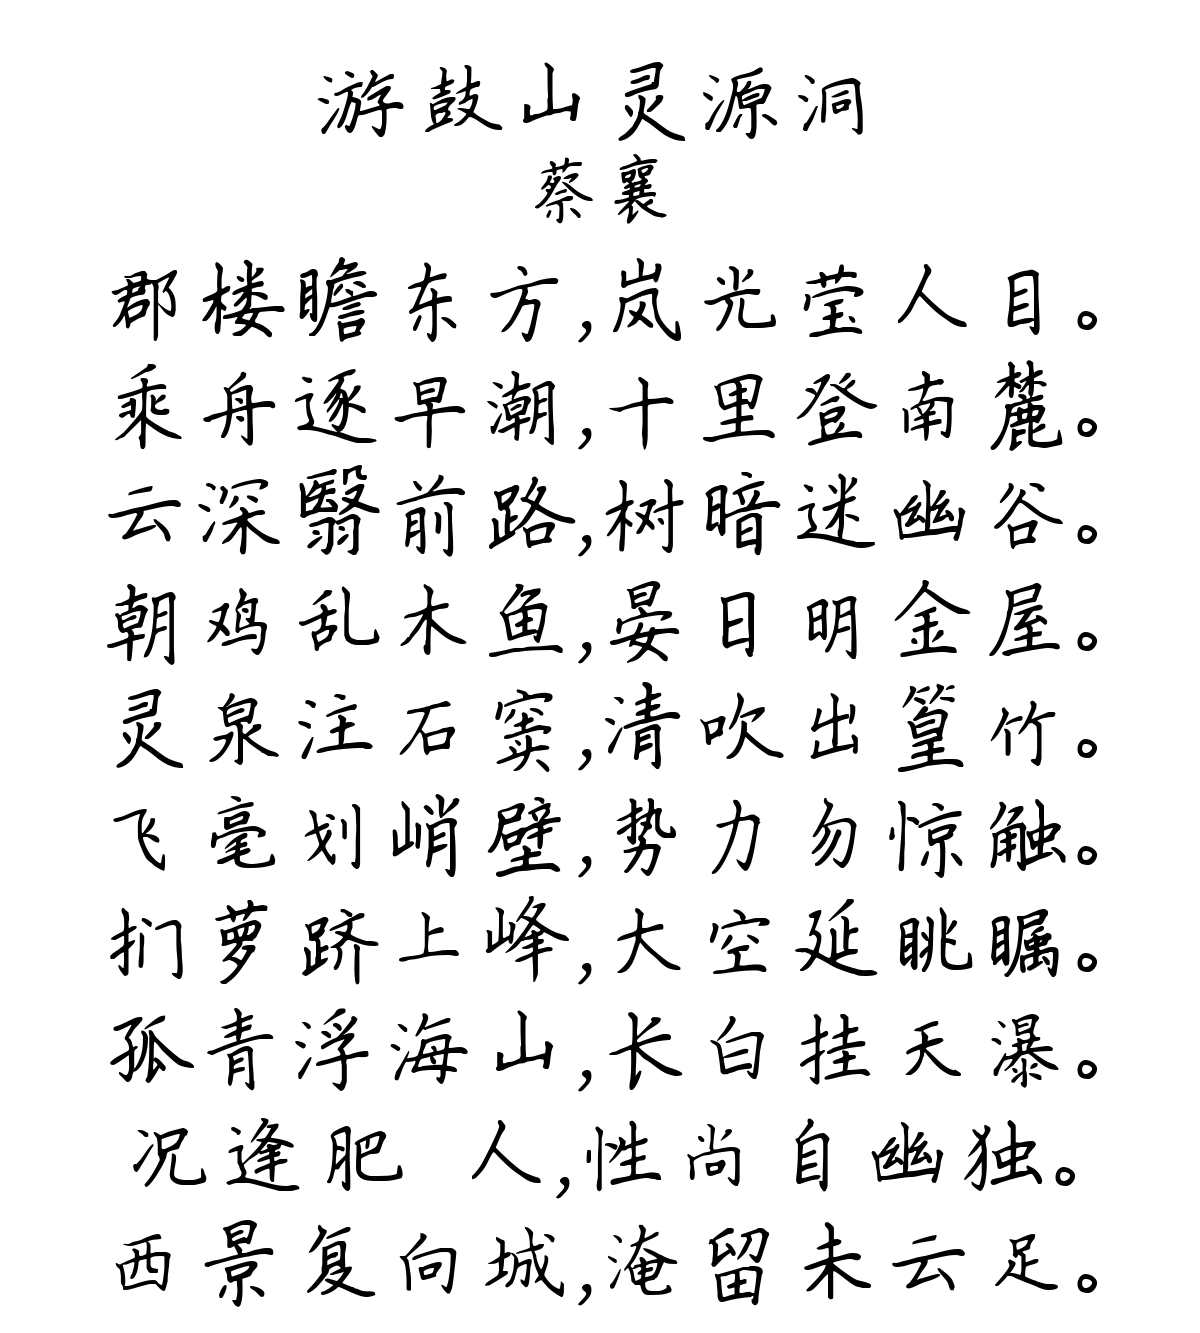 游鼓山灵源洞
蔡襄
郡楼瞻东方,岚光莹人目。
乘舟逐早潮,十里登南麓。
云深翳前路,树暗迷幽谷。
朝鸡乱木鱼,晏日明金屋。
灵泉注石窦,清吹出篁竹。
飞毫划峭壁,势力勿惊触。
扪萝跻上峰,大空延眺瞩。
孤青浮海山,长白挂天瀑。
况逢肥 人,性尚自幽独。
西景复向城,淹留未云足。